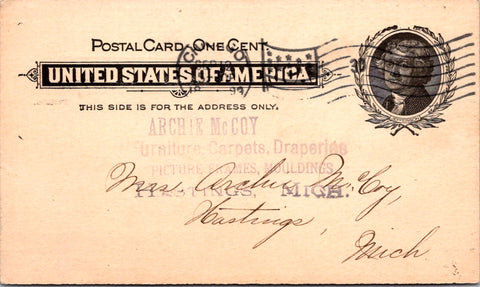 POSTAL CARD-ONE CENT.
UNITED STATES OF AMERICA.
THIS SIDE IS FOR THE ADDRESS ONLY.
ARCHIE McCOY
Furniture, Carpets, Draperies
PICTURE FRAMES, MOULDINGS
HASTINGS, MICH.
Mrs. Archie McCoy,
Hastings,
Mich.